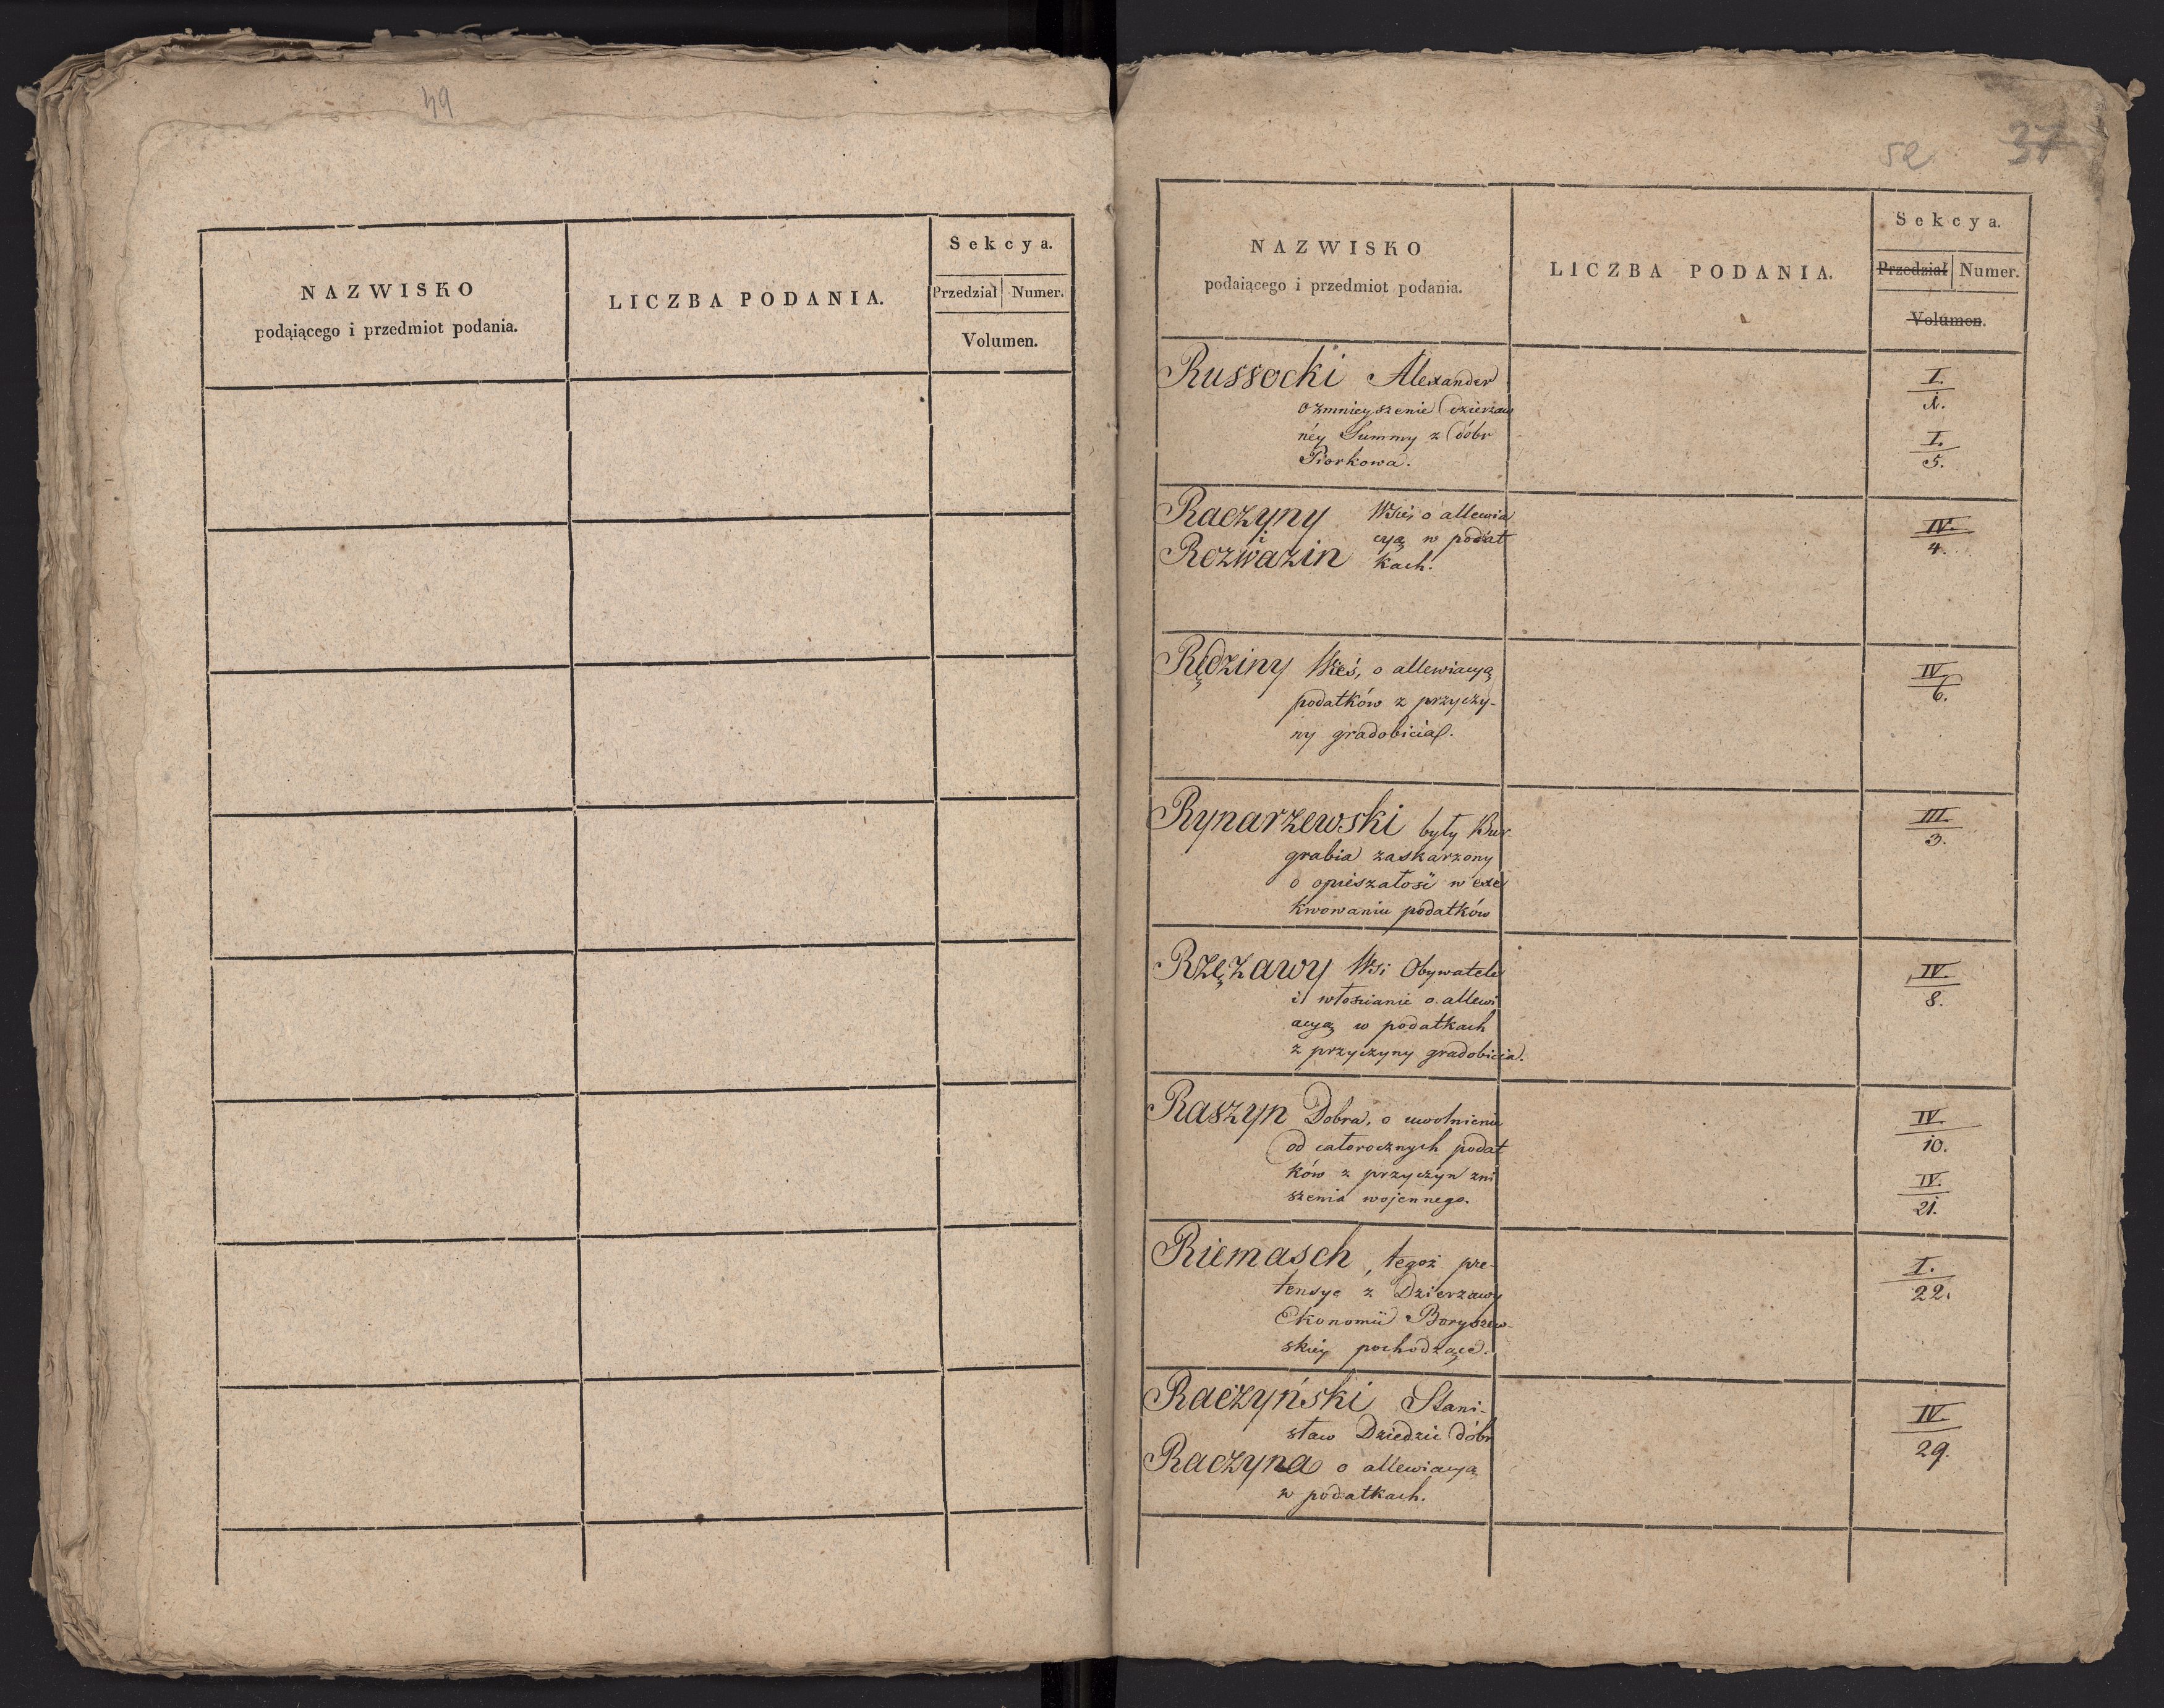 49
NAZWISKO
podaiącego i przedmiot podania.
LICZBA PODANIA.
Sekcya.
Przedział
Numer.
Volumen.
52
37
NAZWISKO
podaiącego i przedmiot podania.
LICZBA PODANIA.
Sekcya.
Przedział
Numer.
Volumen.
Russocki Alexander
o zmnieyszenie dzierżaw
néy Summy z dóbr
Piorkowa.
I.
1.
I.
5.
Raczyny Wsie, o allewia
i cyą w podat
Rozwazin kach.
IV.
4.
Rędziny Wieś, o allewiacyą
podatków z przyczy-
ny gradobicia.
IV
6.
Rynarzewski były Bur-
grabia zaskarzony
o opieszałość w exe
kwowaniu podatków
III.
3.
Rzężawy Wsi Obywatele
i włościanie o allewi
acyą w podatkach
z przyczyny gradobicia.
IV.
8.
Raszyn Dobra, o uwolnienie
od całorocznych podat
ków z przyczyn zni
szenia wojennego.
IV.
10.
IV.
21.
Riemasch, tegoż pre-
tensye z Dzierzawy
Ekonomii Boryszew-
skiey pochodzące.
I.
22.
Raczyński Stani-
sław Dziedzic dóbr
Raczyna o allewiacyą
w podatkach.
IV.
29.